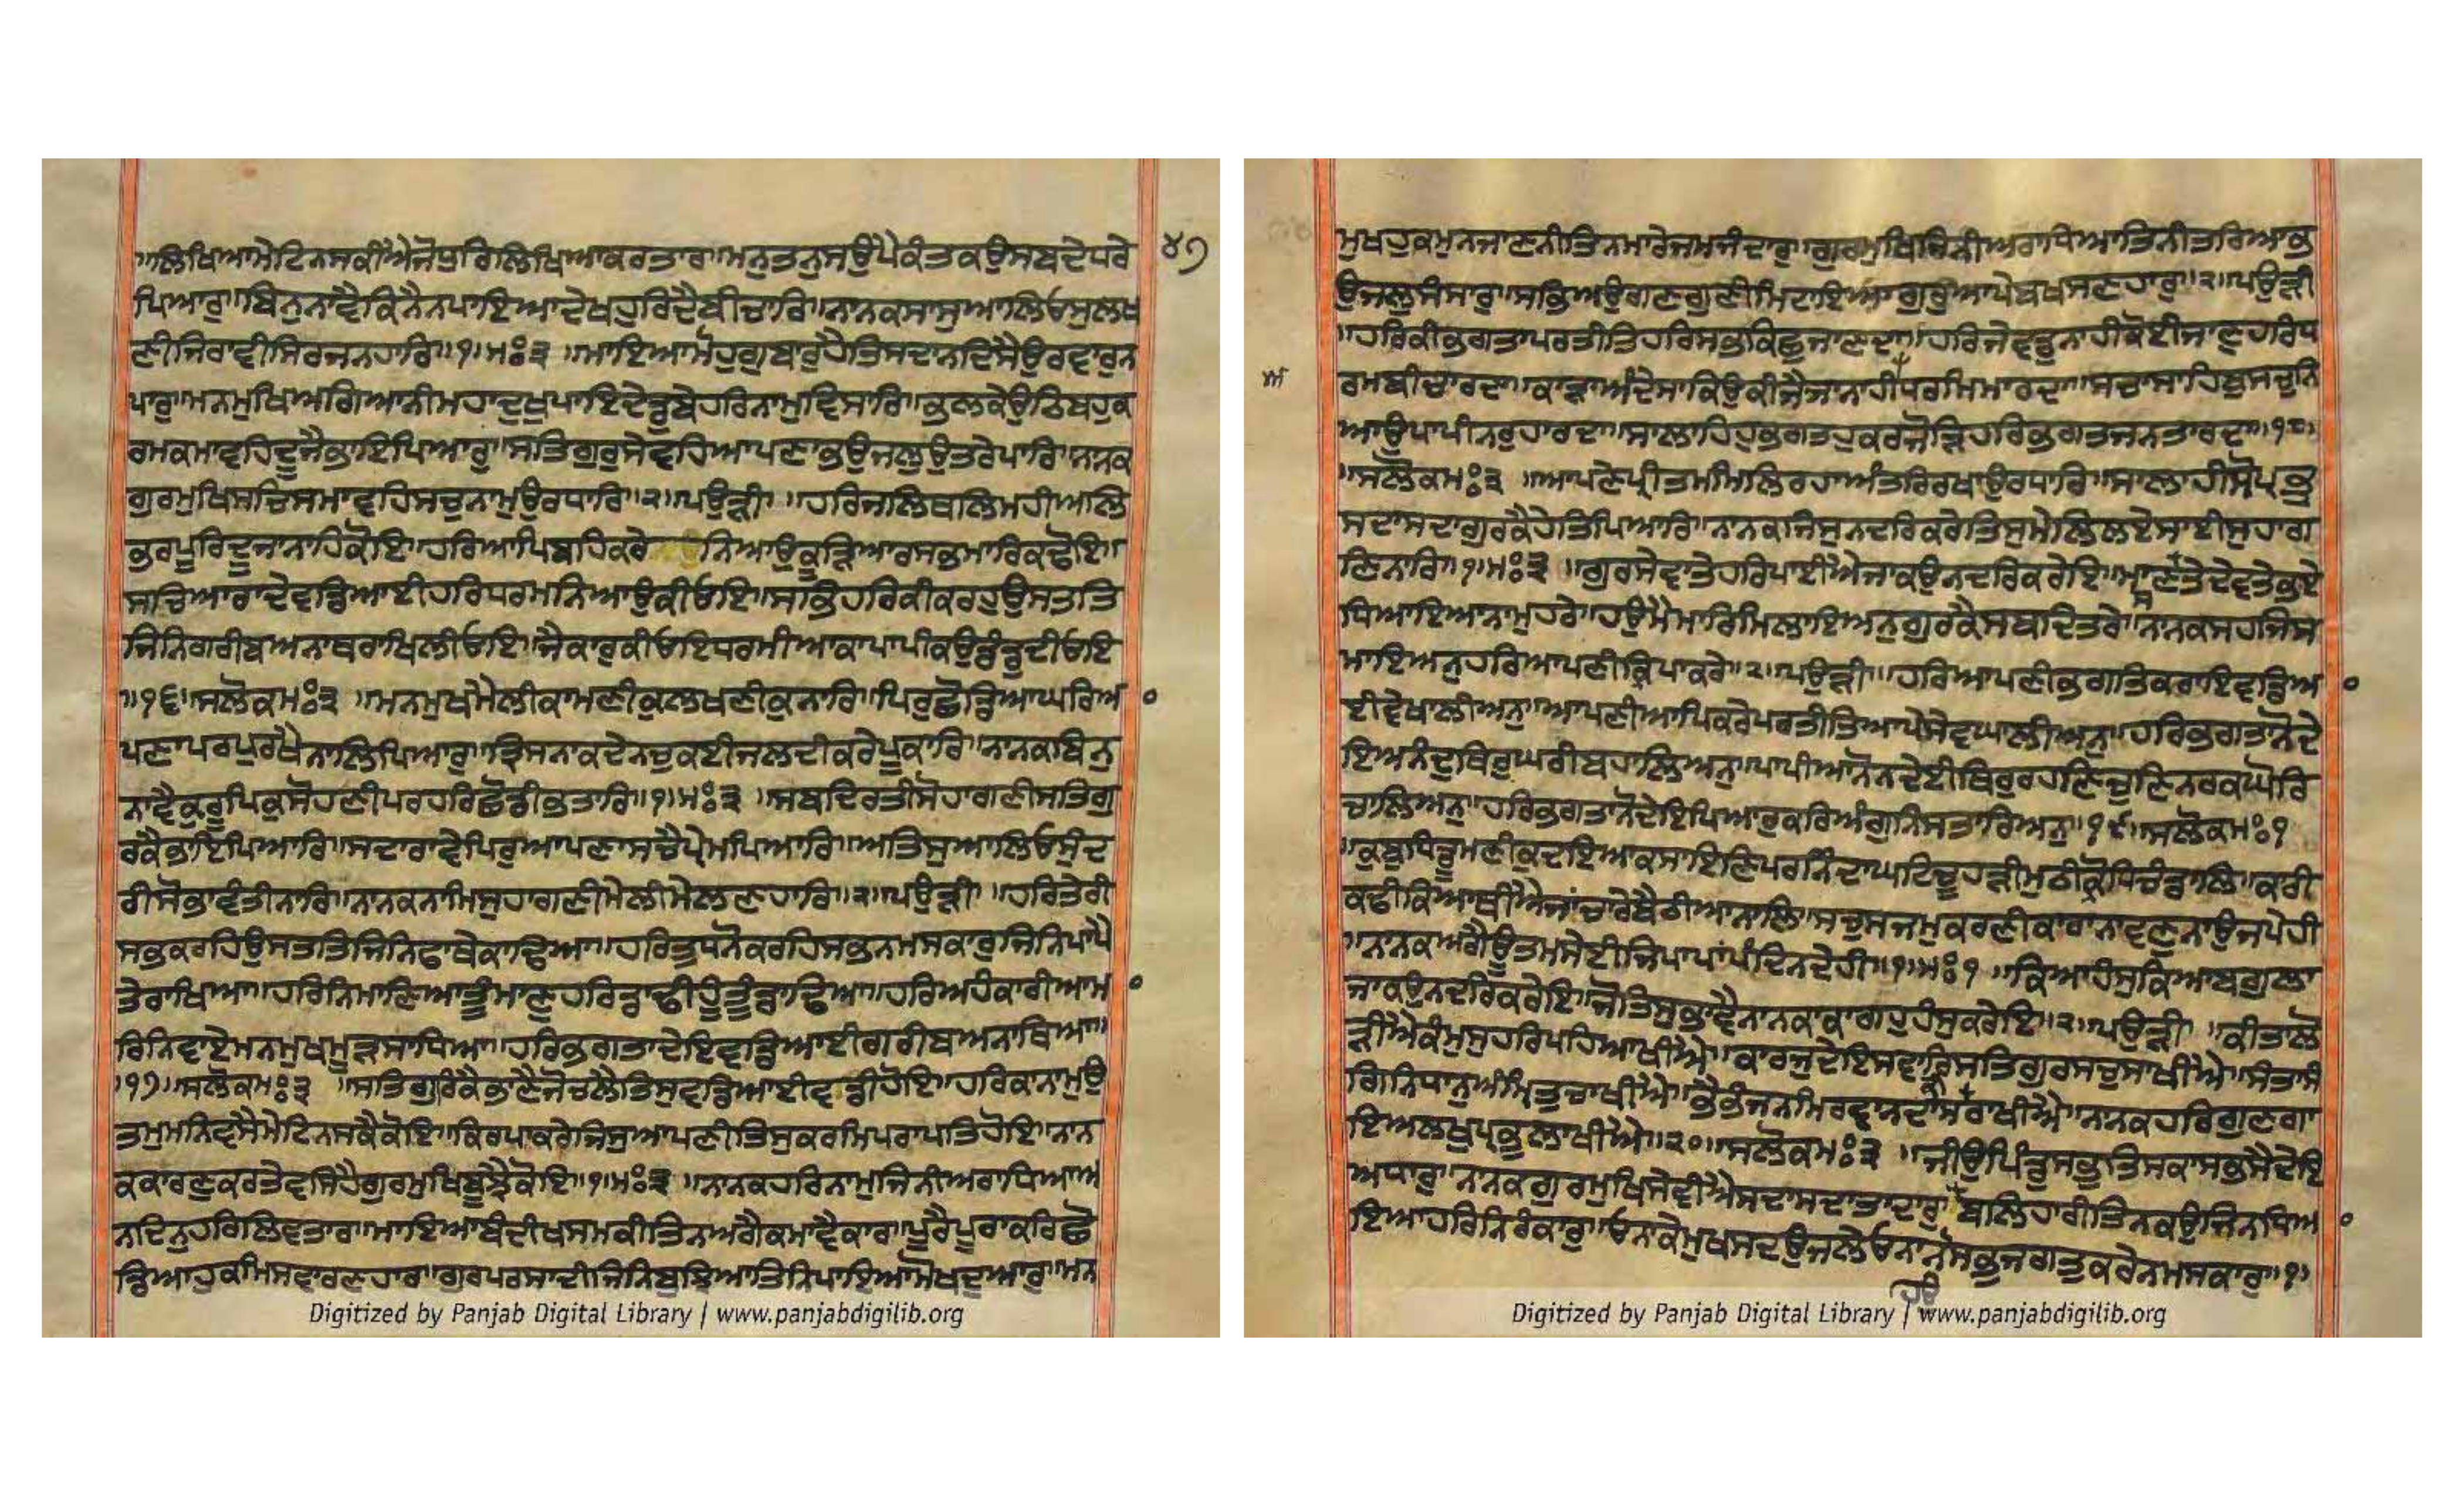 ॥ਲਿਖਿਆਮੇਟਿਨਸਕੀਐਜੋਧੁਰਿਲਿਖਿਆਕਰਤਾਰਿ॥ਮਨੁਤਨੁਸਉਪੇਕੰਤਕਉਸਬਦੇਧਰੇ
੪੭
ਪਿਆਰੁ॥ਬਿਨੁਨਾਵੈਕਿਨੈਨਪਾਇਆਦੇਖਹੁਰਿਦੈਬੀਚਾਰਿ॥ਨਾਨਕਸਾਸੁਆਲਿਓਸੁਲਖ
ਣੀਜਿਰਾਵੀਸਿਰਜਨਹਾਰਿ॥੧॥ਮਃ੩ ॥ਮਾਇਆਮੋਹੁਗੁਬਾਰੁਹੈਤਿਸਦਾਨਦਿਸੈਉਰਵਾਰੁਨ
ਪਾਰੁ॥ਮਨਮੁਖਿਅਗਿਆਨੀਮਹਾਦੁਖੁਪਾਇਦੇਡੁਬੇਹਰਿਨਾਮੁਵਿਸਾਰਿ॥ਭਲਕੇਉਠਿਬਹੁਕ
ਰਮਕਮਾਵਹਿਦੂਜੈਭਾਇਪਿਆਰੁ॥ਸਤਿਗੁਰੁਸੇਵਹਿਆਪਣਾਭਉਜਲੁਉਤਰੇਪਾਰਿ॥ਨਾਨਕ
ਗੁਰਮੁਖਿਸਚਿਸਮਾਵਹਿਸਚੁਨਾਮੁਉਰਧਾਰਿ॥੨॥ਪਉੜੀ॥ ॥ਹਰਿਜਲਿਥਲਿਮਹੀਅਲਿ
ਭਰਪੂਰਿਦੂਜਾਨਾਹਿਕੋਇ॥ਹਰਿਆਪਿਬਹਿਕਰੇ ਨਿਆਉਕੂੜਿਆਰਸਭਮਾਰਿਕਢੋਇ॥
ਸਚਿਆਰਾਦੇਵਡਿਆਈਹਰਿਧਰਮਨਿਆਉਕੀਓਇ॥ਸਭਿਹਰਿਕੀਕਰਹੁਉਸਤਤਿ
ਜਿਨਿਗਰੀਬਅਨਾਥਰਾਖਿਲੀਓਇ॥ਜੈਕਾਰੁਕੀਓਇਧਰਮੀਆਕਾਪਾਪੀਕਉਡੰਡੁਦੀਓਇ
॥੧੬॥ਸਲੋਕਮਃ੩ ॥ਮਨਮੁਖਮੈਲੀਕਾਮਣੀਕੁਲਖਣੀਕੁਨਾਰਿ॥ਪਿਰੁਛੋਡਿਆਘਰਿਅ
ਪਣਾਪਰਪੁਰਖੈਨਾਲਿਪਿਆਰੁ॥ਤ੍ਰਿਸਨਾਕਦੇਨਚੁਕਈਜਲਦੀਕਰੇਪੂਕਾਰਿ॥ਨਾਨਕਬਿਨੁ
ਨਾਵੈਕੁਰੂਪਿਕੁਸੋਹਣੀਪਰਹਰਿਛੋਡੀਭਤਾਰਿ॥੧॥ਮਃ੩ ॥ਸਬਦਿਰਤੀਸੋਹਾਗਣੀਸਤਿਗੁ
ਰਕੈਭਾਇਪਿਆਰਿ॥ਸਦਾਰਾਵੇਪਿਰੁਆਪਣਾਸਚੈਪ੍ਰੇਮਪਿਆਰਿ॥ਅਤਿਸੁਆਲਿਓਸੁੰਦ
ਰੀਸੋਭਾਵੰਤੀਨਾਰਿ॥ਨਾਨਕਨਾਮਿਸੁਹਾਗਣੀਮੇਲੀਮੇਲਣਹਾਰਿ॥੨॥ਪਉੜੀ॥ ॥ਹਰਿਤੇਰੀ
ਸਭਕਰਹਿਉਸਤਤਿਜਿਨਿਫਾਥੇਕਾਢਿਆ॥ਹਰਿਤੁਧਨੋਕਰਹਿਸਭਨਮਸਕਾਰੁਜਿਨਿਪਾਪੈ
ਤੇਰਾਖਿਆ॥ਹਰਿਨਿਮਾਣਿਆਤੂੰਮਾਣੁਹਰਿਡਾਢੀਹੂੰਤੂੰਡਾਢਿਆ॥ਹਰਿਅਹੰਕਾਰੀਆਮਾ
ਰਿਨਿਵਾਏਮਨਮੁਖਮੂੜਸਾਧਿਆ॥ਹਰਿਭਗਤਾਦੇਇਵਡਿਆਈਗਰੀਬਅਨਾਥਿਆ॥
੧੭॥ਸਲੋਕਮਃ੩ ॥ਸਤਿਗੁਰਕੈਭਾਣੈਜੋਚਲੈਤਿਸੁਵਡਿਆਈਵਡੀਹੋਇ॥ਹਰਿਕਾਨਾਮੁਉ
ਤਮੁਮਨਿਵਸੈਮੇਟਿਨਸਕੈਕੋਇ॥ਕਿਰਪਾਕਰੇਜਿਸੁਆਪਣੀਤਿਸੁਕਰਮਿਪਰਾਪਤਿਹੋਇ॥ਨਾਨ
ਕਕਾਰਣੁਕਰਤੇਵਸਿਹੈਗੁਰਮੁਖਿਬੂਝੈਕੋਇ॥੧॥ਮਃ੩ ॥ਨਾਨਕਹਰਿਨਾਮੁਜਿਨੀਅਰਾਧਿਆਅ
ਨਦਿਨੁਹਰਿਲਿਵਤਾਰ॥ਮਾਇਆਬੰਦੀਖਸਮਕੀਤਿਨਅਗੈਕਮਾਵੈਕਾਰ॥ਪੂਰੈਪੂਰਾਕਰਿਛੋ
ਡਿਆਹੁਕਮਿਸਵਾਰਣਹਾਰ॥ਗੁਰਪਰਸਾਦੀਜਿਨਿਬੁਝਿਆਤਿਨਿਪਾਇਆਮੋਖਦੁਆਰੁ॥ਮਨ
Digitized by Panjab Digital Library | www.panjabdigilib.org
ਮੁਖਹੁਕਮੁਨਜਾਣਨੀਤਿਨਮਾਰੇਜਮਜੰਦਾਰੁ॥ਗੁਰਮੁਖਿਜਿਨੀਅਰਾਧਿਆਤਿਨੀਤਰਿਆਭ
ਉਜਲੁਸੰਸਾਰੁ॥ਸਭਿਅਉਗਣਗੁਣੀਮਿਟਾਇਆਗੁਰੁਆਪੇਬਖਸਣਹਾਰੁ॥੨॥ਪਉੜੀ
॥ਹਰਿਕੀਭਗਤਾਪਰਤੀਤਿਹਰਿਸਭਕਿਛੁਜਾਣਦਾ॥ਹਰਿਜੇਵਡੁਨਾਹੀਕੋਈਜਾਣੁਹਰਿਧ
ਰਮਬੀਚਾਰਦਾ॥ਕਾੜਾਅੰਦੇਸਾਕਿਉਕੀਜੈਜਾਨਾਹੀਧਰਮਿਮਾਰਦਾ॥ਸਚਾਸਾਹਿਬੁਸਚੁਨਿ
ਆਉਪਾਪੀਨਰੁਹਾਰਦਾ॥ਸਾਲਾਹਿਹੁਭਗਤਹੁਕਰਜੋੜਿਹਰਿਭਗਤਜਨਤਾਰਦਾ॥੧੮॥
॥ਸਲੋਕਮਃ੩ ॥ਆਪਣੇਪ੍ਰੀਤਮਮਿਲਿਰਹਾਅੰਤਰਿਰਖਾਉਰਧਾਰਿ॥ਸਾਲਾਹੀਸੋਪ੍ਰਭੁ
ਸਦਾਸਦਾਗੁਰਕੈਹੇਤਿਪਿਆਰਿ॥ਨਾਨਕਜਿਸੁਨਦਰਿਕਰੇਤਿਸੁਮੇਲਿਲਏਸਾਈਸੁਹਾਗ
ਣਿਨਾਰਿ॥੧॥ਮਃ੩ ॥ਗੁਰਸੇਵਾਤੇਹਰਿਪਾਈਐਜਾਕਉਨਦਰਿਕਰੇਇ॥ਮਾਣਸਤੇਦੇਵਤੇਭਏ
ਧਿਆਇਆਨਾਮੁਹਰੇ॥ਹਉਮੈਮਾਰਿਮਿਲਾਇਅਨੁਗੁਰਕੈਸਬਦਿਤਰੇ॥ਨਾਨਕਸਹਜਿਸ
ਮਾਇਅਨੁਹਰਿਆਪਣੀਕ੍ਰਿਪਾਕਰੇ॥੨॥ਪਉੜੀ॥ ॥ਹਰਿਆਪਣੀਭਗਤਿਕਰਾਇਵਡਿਅ
ਈਵੇਖਾਲੀਅਨੁ॥ਆਪਣੀਆਪਿਕਰੇਪਰਤੀਤਿਆਪੇਸੇਵਘਾਲੀਅਨੁ॥ਹਰਿਭਗਤਾਨੋਦੇ
ਇਅਨੰਦੁਥਿਰੁਘਰੀਬਹਾਲਿਅਨੁ॥ਪਾਪੀਆਨੋਨਦੇਈਥਿਰੁਰਹਣਿਚੁਣਿਨਰਕਘੋਰਿ
ਚਾਲਿਅਨੁ॥ਹਰਿਭਗਤਾਨੋਦੇਇਪਿਆਰੁਕਰਿਅੰਗੁਨਿਸਤਾਰਿਅਨੁ॥੧੯॥ਸਲੋਕਮਃ੧
॥ਕੁਬੁਧਿਡੂਮਣੀਕੁਦਇਆਕਸਾਇਣਿਪਰਨਿੰਦਾਘਟਿਚੂਹੜੀਮੁਠੀਕ੍ਰੋਧਿਚੰਡਾਲਿ॥ਕਾਰੀ
ਕਢੀਕਿਆਥੀਐਜਾਂਚਾਰੇਬੈਠੀਆਨਾਲਿ॥ਸਚੁਸਜਮੁਕਰਣੀਕਾਰਾਨਾਵਣੁਨਾਉਜਪੇਹੀ
॥ਨਾਨਕਅਗੈਊਤਮਸੇਈਜਿਪਾਪਾਂਪੰਦਿਨਦੇਹੀ॥੧॥ਮਃ੧ ॥ਕਿਆਹੰਸੁਕਿਆਬਗੁਲਾ
ਜਾਕਉਨਦਰਿਕਰੇਇ॥ਜੇਤਿਸੁਭਾਵੈਨਾਨਕਾਕਾਗਹੁਹੰਸੁਕਰੇਇ॥੨॥ਪਉੜੀ ॥ਕੀਤਾਲੋ
ੜੀਐਕੰਮੁਸੁਹਰਿਪਹਿਆਖੀਐ॥ਕਾਰਜੁਦੇਇਸਵਾਰਿਸਤਿਗੁਰਸਚੁਸਾਖੀਐ॥ਸੰਤਾਸੰ
ਗਿਨਿਧਾਨੁਅੰਮ੍ਰਿਤੁਚਾਖੀਐ॥ਭੈਭੰਜਨਮਿਹਰਵਾਨਦਾਸਰਾਖੀਐ॥ਨਾਨਕਹਰਿਗੁਣਗਾ
ਇਅਲਖੁਪ੍ਰਭੁਲਾਖੀਐ॥੨੦॥ਸਲੋਕਮਃ੩ ॥ਜੀਉਪਿੰਡੁਸਭੁਤਿਸਕਾਸਭਸੈਦੇਇ
ਅਧਾਰੁ॥ਨਾਨਕਗੁਰਮੁਖਿਸੇਵੀਐਸਦਾਸਦਾਤਾਦਾਰੁ॥ਬਲਿਹਾਰੀਤਿਨਕਉਜਿਨਧਿਅ
ਇਆਹਰਿਨਿਰੰਕਾਰੁ॥ਓਨਾਕੇਮੁਖਸਦਉਜਲੇਓਨਾਨੋਸਭੁਜਗਤੁਕਰੇਨਮਸਕਾਰੁ॥੧॥
Digitized by Panjab Digital Library | www.panjabdigilib.org